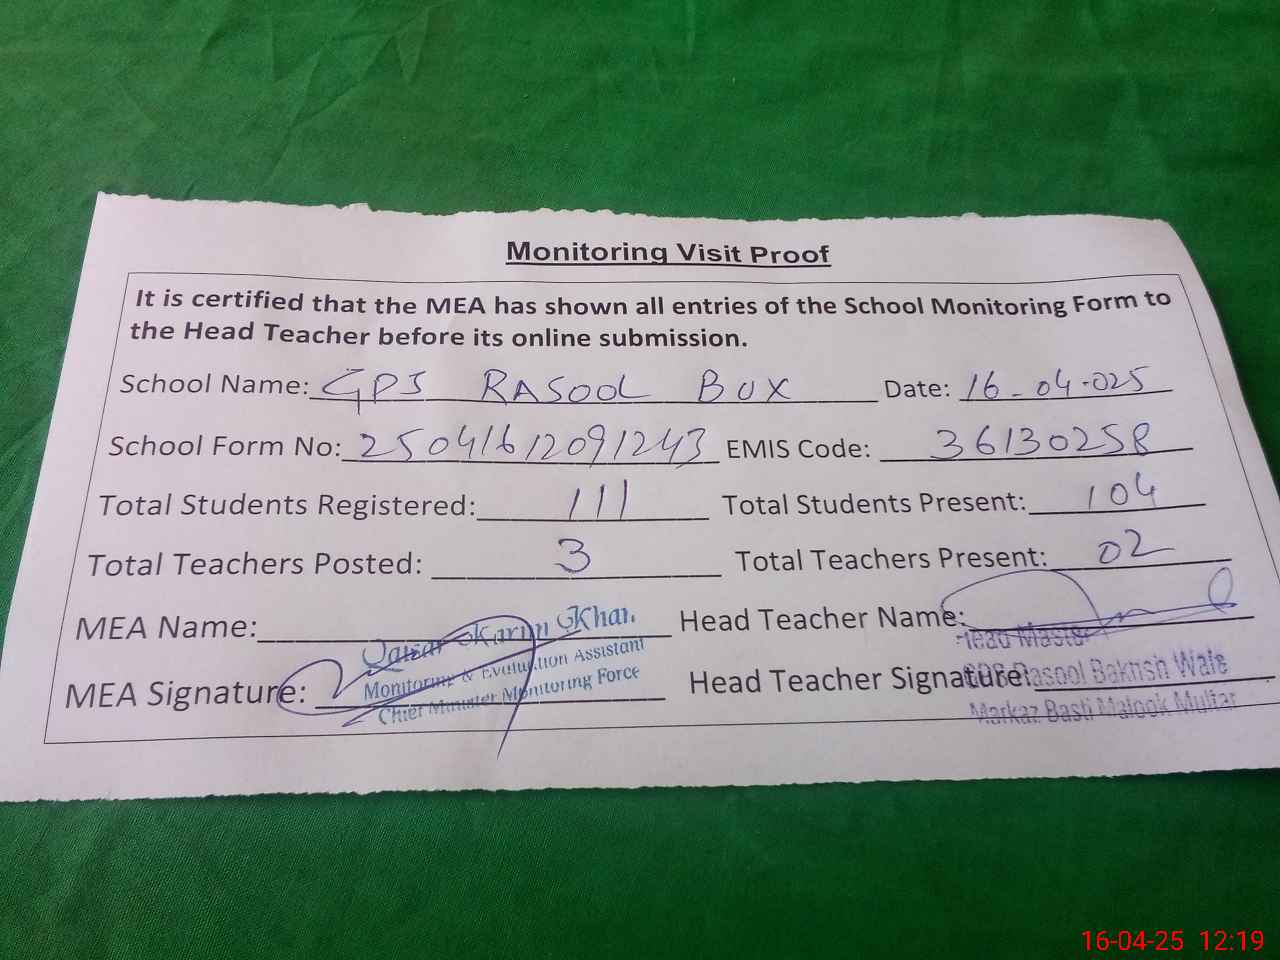 Monitoring Visit Proof
It is certified that the MEA has shown all entries of the School Monitoring Form to
the Head Teacher before its online submission.
School Name: GPS RASOOL BUX Date: 16-04-025
School Form No: 25041612091243 EMIS Code: 36130258
Total Students Registered: 111 Total Students Present: 104
Total Teachers Posted: 3 Total Teachers Present: 02
MEA Name: Qaisar Karim Khan Head Teacher Name:
Head Master
Monitoring & Evaluation Assistant
MEA Signature: Head Teacher Signature: Rasool Bakhsh Wala
Chief Minister Monitoring Force
Markaz Basti Malook Multan
16-04-25 12:19